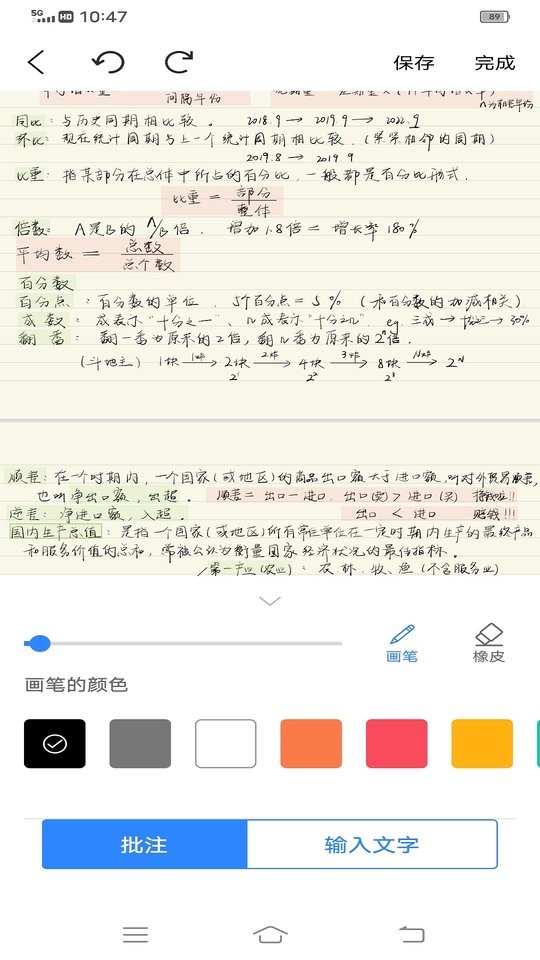 5G HD 10:47 89
保存 完成
间隔年份
n为相差年份
同比：与历史同期相比较。 2018.9 → 2019.9 → 2022.9
环比：现在统计周期与上一个统计周期相比较.（紧紧相邻的周期）
2019.8 → 2019 9
比重：指某部分在总体中所占的百分比，一般都是百分比形式.
比重 = 部分/整体
倍数：A是B的 A/B 倍. 增加1.8倍 = 增长率180%
平均数 = 总数/总个数
百分数
百分点：百分数的单位. 5个百分点 = 5%（和百分数的加减相关）
成数：成表示"十分之一"、n成表示"十分之n". eg. 三成 → 十分之三 → 30%
翻番：翻一番为原来的2倍，翻n番为原来的2ⁿ倍.
（斗地主） 1块 → 2块 → 4块 → 8块 → 2ᴺ
2¹ 2² 2³
顺差：在一个时期内，一个国家（或地区）的商品出口额大于进口额，叫对外贸易顺差，
也叫净出口额，出超. 顺差 = 出口－进口. 出口(卖) > 进口(买)
逆差：净进口额，入超. 出口 < 进口 赔钱!!!
国内生产总值：是指一个国家（或地区）所有常住单位在一定时期内生产的最终产品
和服务价值的总和，常被公认为衡量国家经济状况的最佳指标.
第一产业(农业)：农.林.牧.渔（不含服务业）
画笔 橡皮
画笔的颜色
批注 输入文字